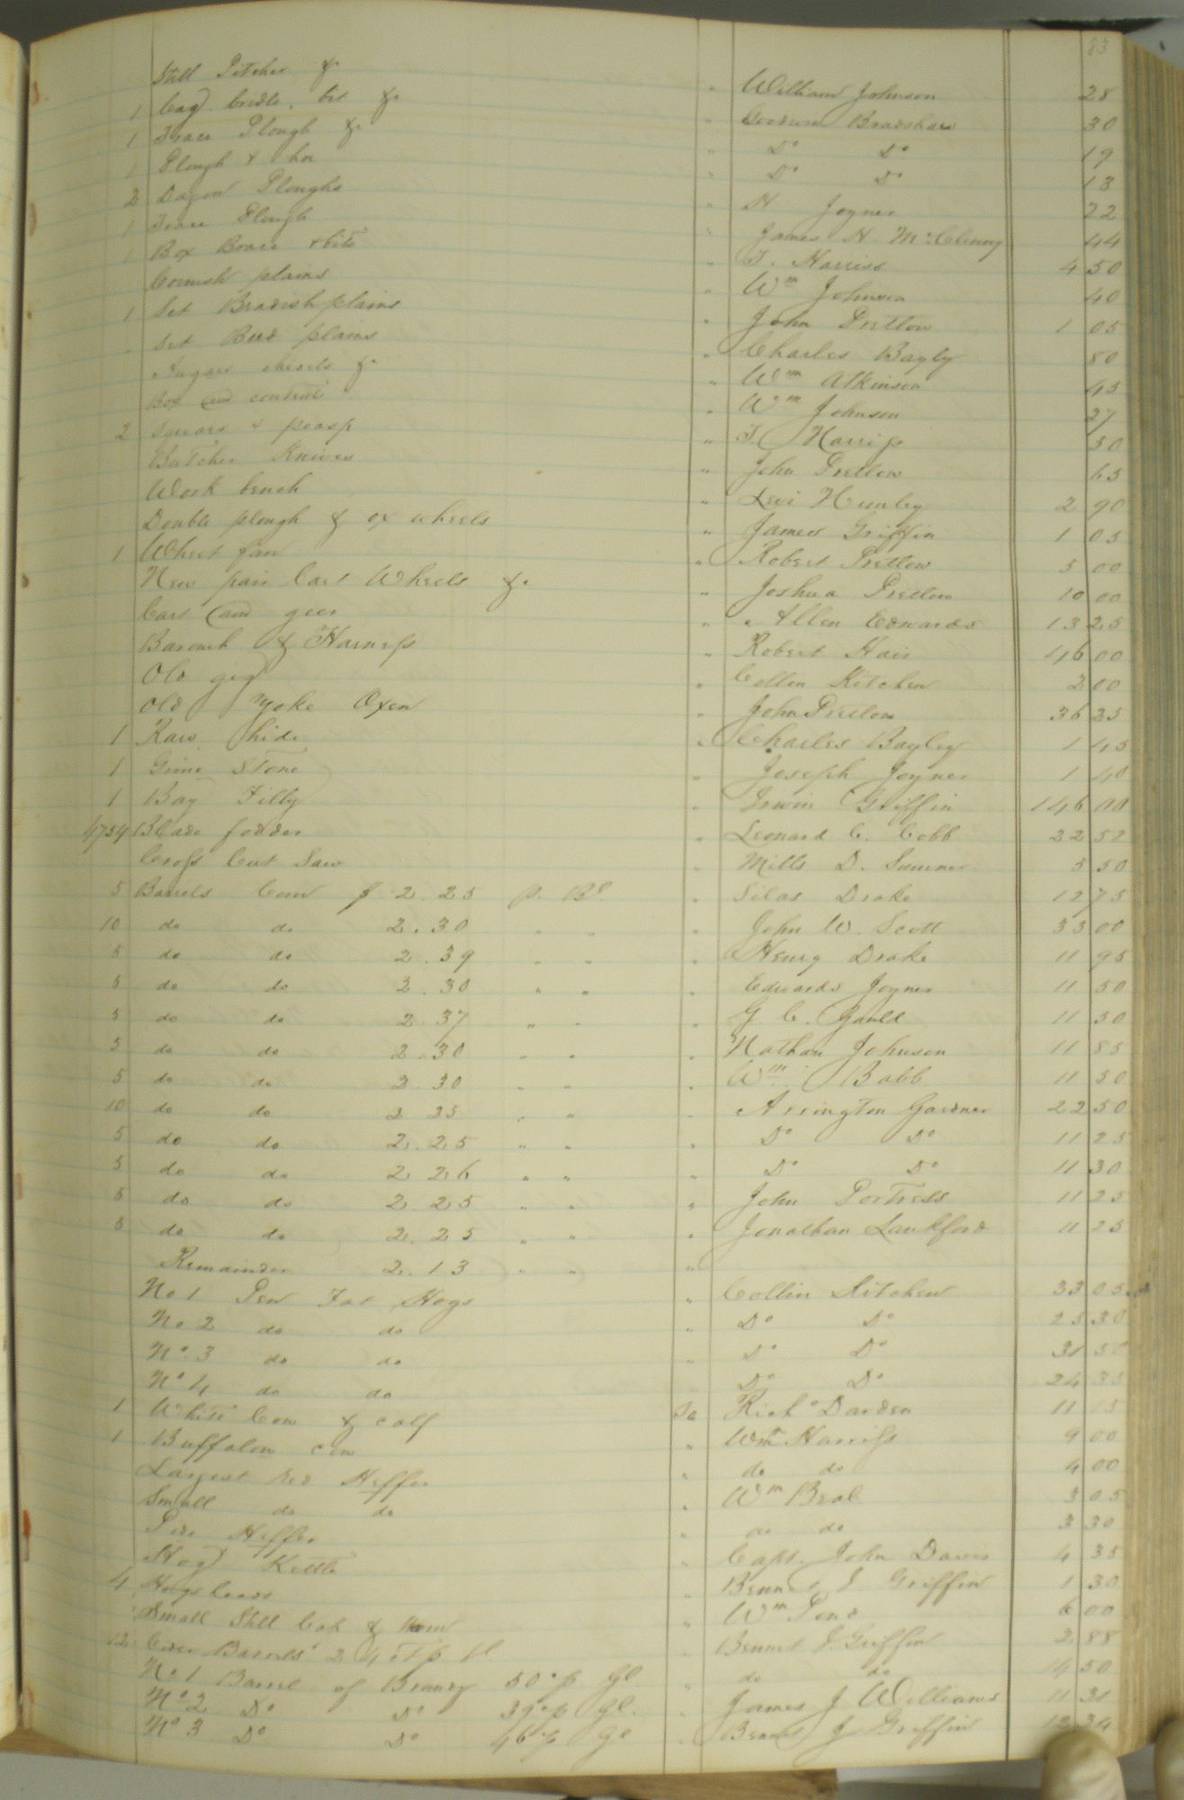 83
Still Pitcher &c " William Johnson 28
1 Cag bridle, bit &c " Goodwin Bradshaw 30
1 Trace Plough &c " Do Do 19
1 Plough & hoe " Do Do 13
2 Dagon Ploughs " N Joyner 22
1 Trace Plough " James N. McClenny 44
1 Box Brace & bits " T. Harriss 4 50
Cornish plains " Wm Johnson 40
1 Set Bradish plains " John Pretlow 1 05
Set Bead plains " Charles Bagly 80
Augurs chisels &c " Wm Atkinson 45
Box and contents " Wm Johnson 27
2 Squares & " T. Harriss 50
Butcher Knives " John Pretlow 65
Work bench " Levi 2 90
Double plough & ox wheels " James Griffin 1 05
1 Wheat fan " Robert Pretlow 5 00
New pair Cart Wheels &c " Joshua Pretlow 10 00
Cart and geer " Allen Edwards 13 25
Barouch & Harness " Robert Hair 46 00
Old gig " Collin Kitchen 2 00
Old Yoke Oxen " John Pretlow 36 25
1 Raw hide " Charles Bayley 1 45
1 Grine Stone " Joseph Joyner 1 40
1 Bay Filly " Irwin Griffin 146 00
4754 Blade fodder " Leonard C. Cobb 22 52
Cross Cut Saw " Mills D. Sumner 5 50
5 Barrels Corn $ 2.25 p. Bl. " Silas Drake 12 75
10 do do 2.30 " " " John W. Scott 33 00
5 do do 2.39 " " " Henry Drake 11 95
5 do do 2.30 " " " Edwards Joyner 11 50
5 do do 2.37 " " " G. C. Gauld 11 50
5 do do 2.30 " " " Nathan Johnson 11 85
5 do do 2 30 " " " Wm Babb 11 50
10 do do 2 25 " " " Arrington Gardner 22 50
5 do do 2.25 " " " Do Do 11 25
5 do do 2 26 " " " Do Do 11 30
5 do do 2 25 " " " John Portress 11 25
5 do do 2.25 " " " Jonathan Lankford 11 25
Remainder 2.13 " " "
No 1 Pen Fat Hogs " Collin Kitchen 33 05
No 2 do do " Do Do 25 30
No 3 do do " Do Do 31 50
No 4 do do " Do Do 24 35
1 White Cow & calf To Richd Darden 11 15
1 Buffalow cow " Wm Harriss 9 00
Largest red Heffer " do do 4 00
Small do do " Wm Beal 3 05
Pide Heffer " do do 3 30
Hog Kettle " Capt. John Davis 4 35
4 Hogsheads " Bennet J Griffin 1 30
Small Still Cap & worm " Wm Pond 6 00
12 Cider Barrels 24 cts p bl " Bennet J. Griffin 2 88
No 1 Barrel of Brandy 50 c p gl. " do do 14 50
No 2 Do Do 39 c p gl. " James J Williams 11 31
No 3 Do Do 46 c p gl " Bennet J Griffin 12 34